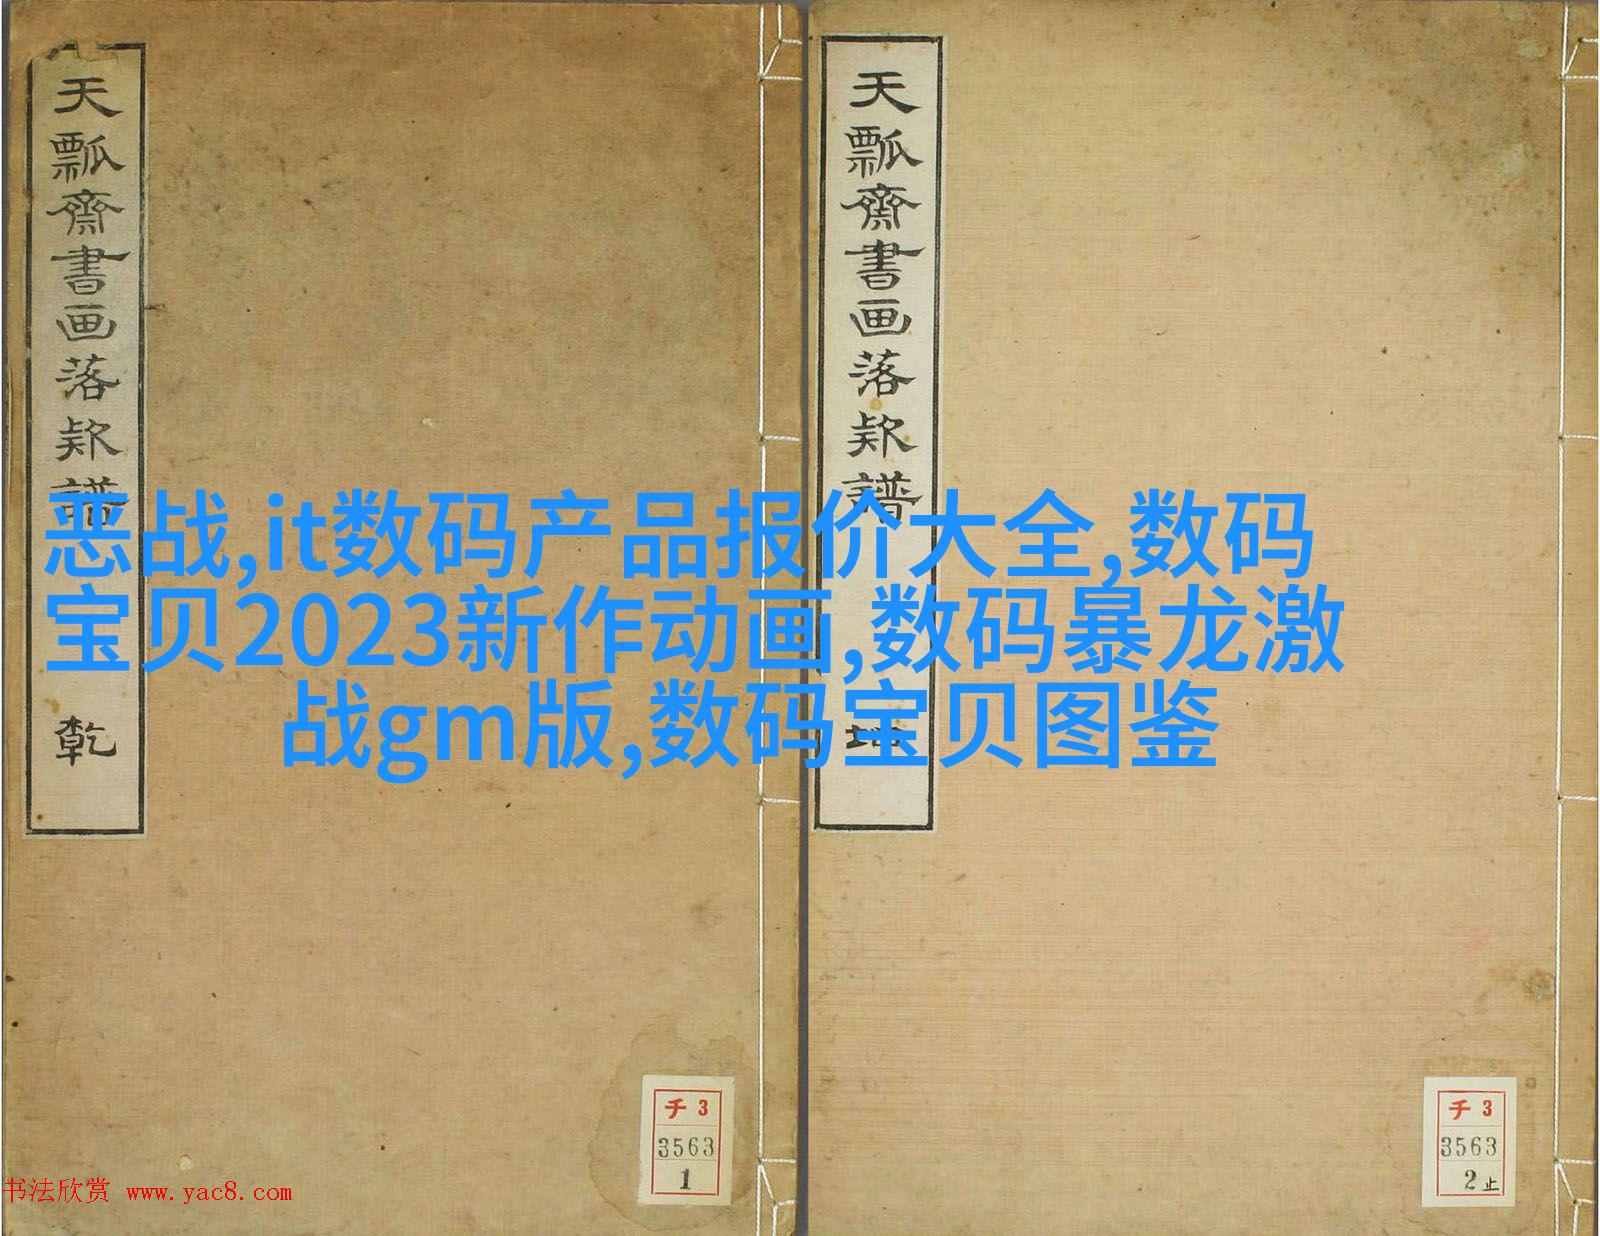 天瓢齋書画落款譜
乾
天瓢齋書画落款譜
坤
恶战,it数码产品报价大全,数码
宝贝2023新作动画,数码暴龙激
战gm版,数码宝贝图鉴
チ3
3563
1
チ3
3563
2止
书法欣赏 www.yac8.com